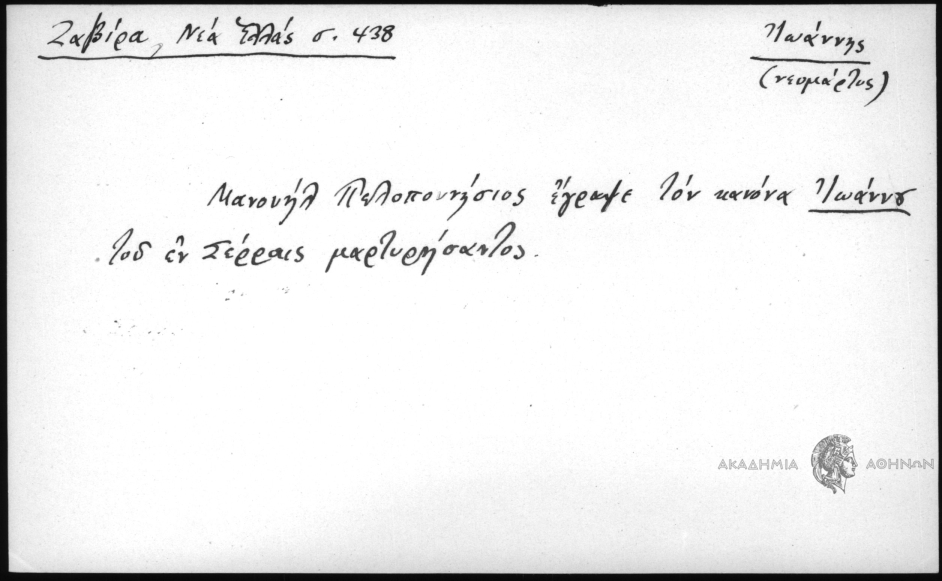 Ζαβίρα, Νέα Ἑλλάς σ. 438
Ἰωάννης
(νεομάρτυς)
Μανουήλ Πελοποννήσιος ἔγραψε τόν κανόνα Ἰωάννου
τοῦ ἐν Σέρραις μαρτυρήσαντος.
ΑΚΑΔΗΜΙΑ ΑΘΗΝΩΝ